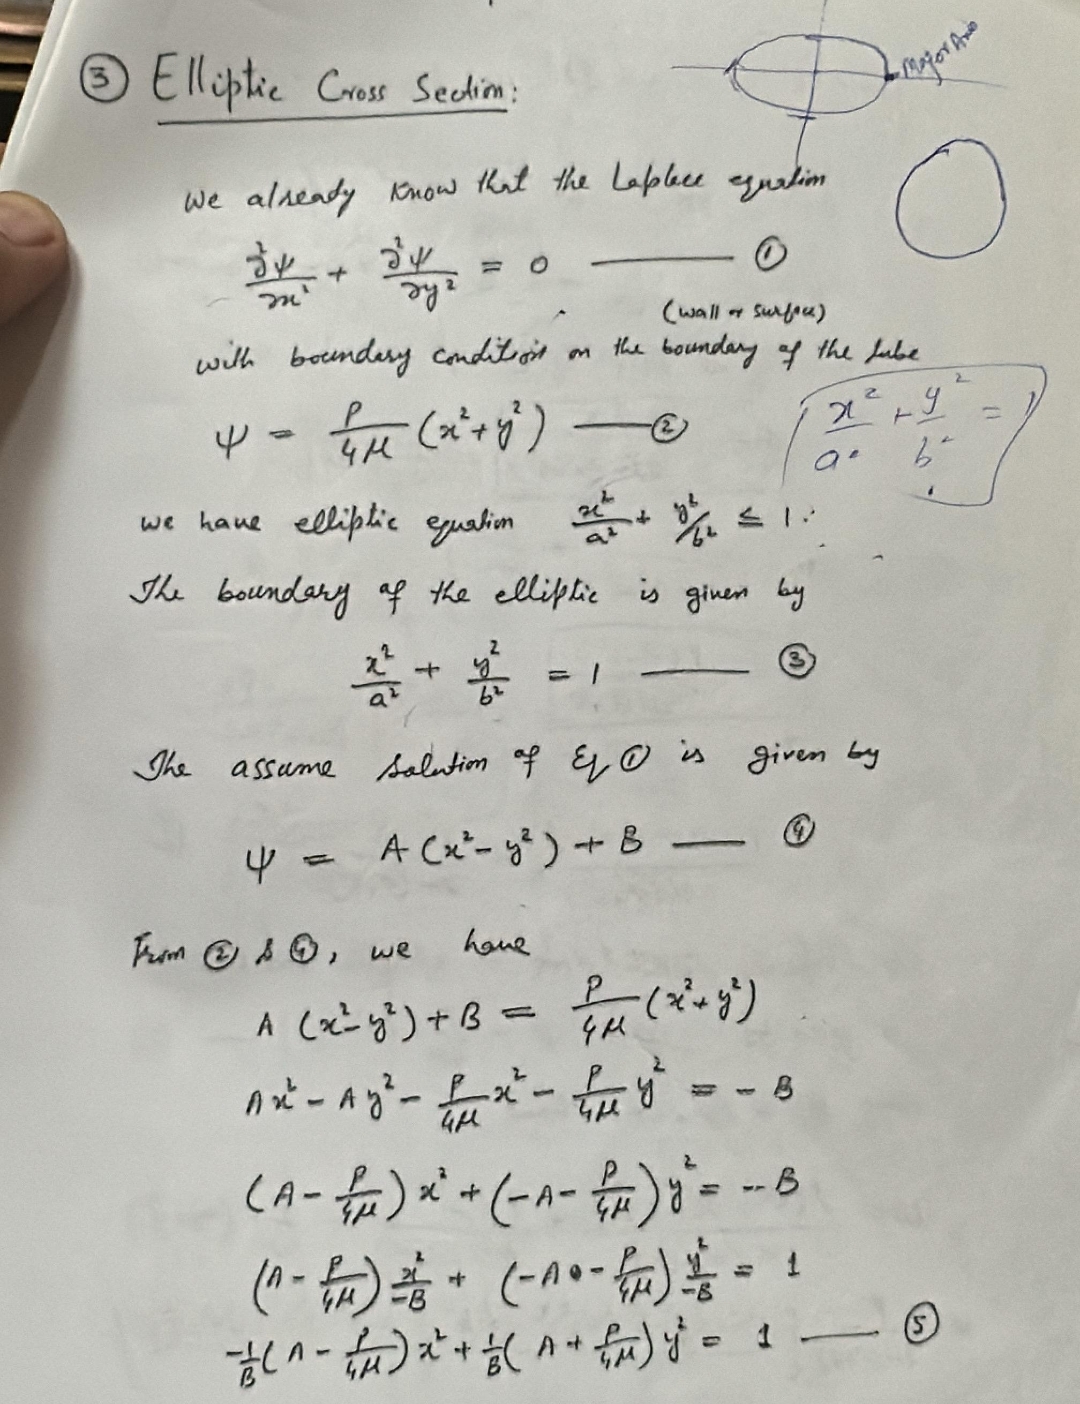 ③ Elliptic Cross Section:
Major Axis
We already know that the Laplace equation
∂²ψ/∂x² + ∂²ψ/∂y² = 0 —— ①
(wall or surface)
with boundary condition on the boundary of the tube
ψ = P/4μ (x²+y²) —— ②
x²/a² + y²/b² = 1
we have elliptic equation x²/a² + y²/b² ≤ 1.
The boundary of the elliptic is given by
x²/a² + y²/b² = 1 —— ③
The assume solution of Eq ① is given by
ψ = A (x²-y²) + B —— ④
From ② & ④, we have
A (x²-y²) + B = P/4μ (x²+y²)
Ax² - Ay² - P/4μ x² - P/4μ y² = - B
(A - P/4μ) x² + (-A - P/4μ) y² = - B
(A - P/4μ) x²/-B + (-A - P/4μ) y²/-B = 1
-1/B (A - P/4μ) x² + 1/B (A + P/4μ) y² = 1 —— ⑤